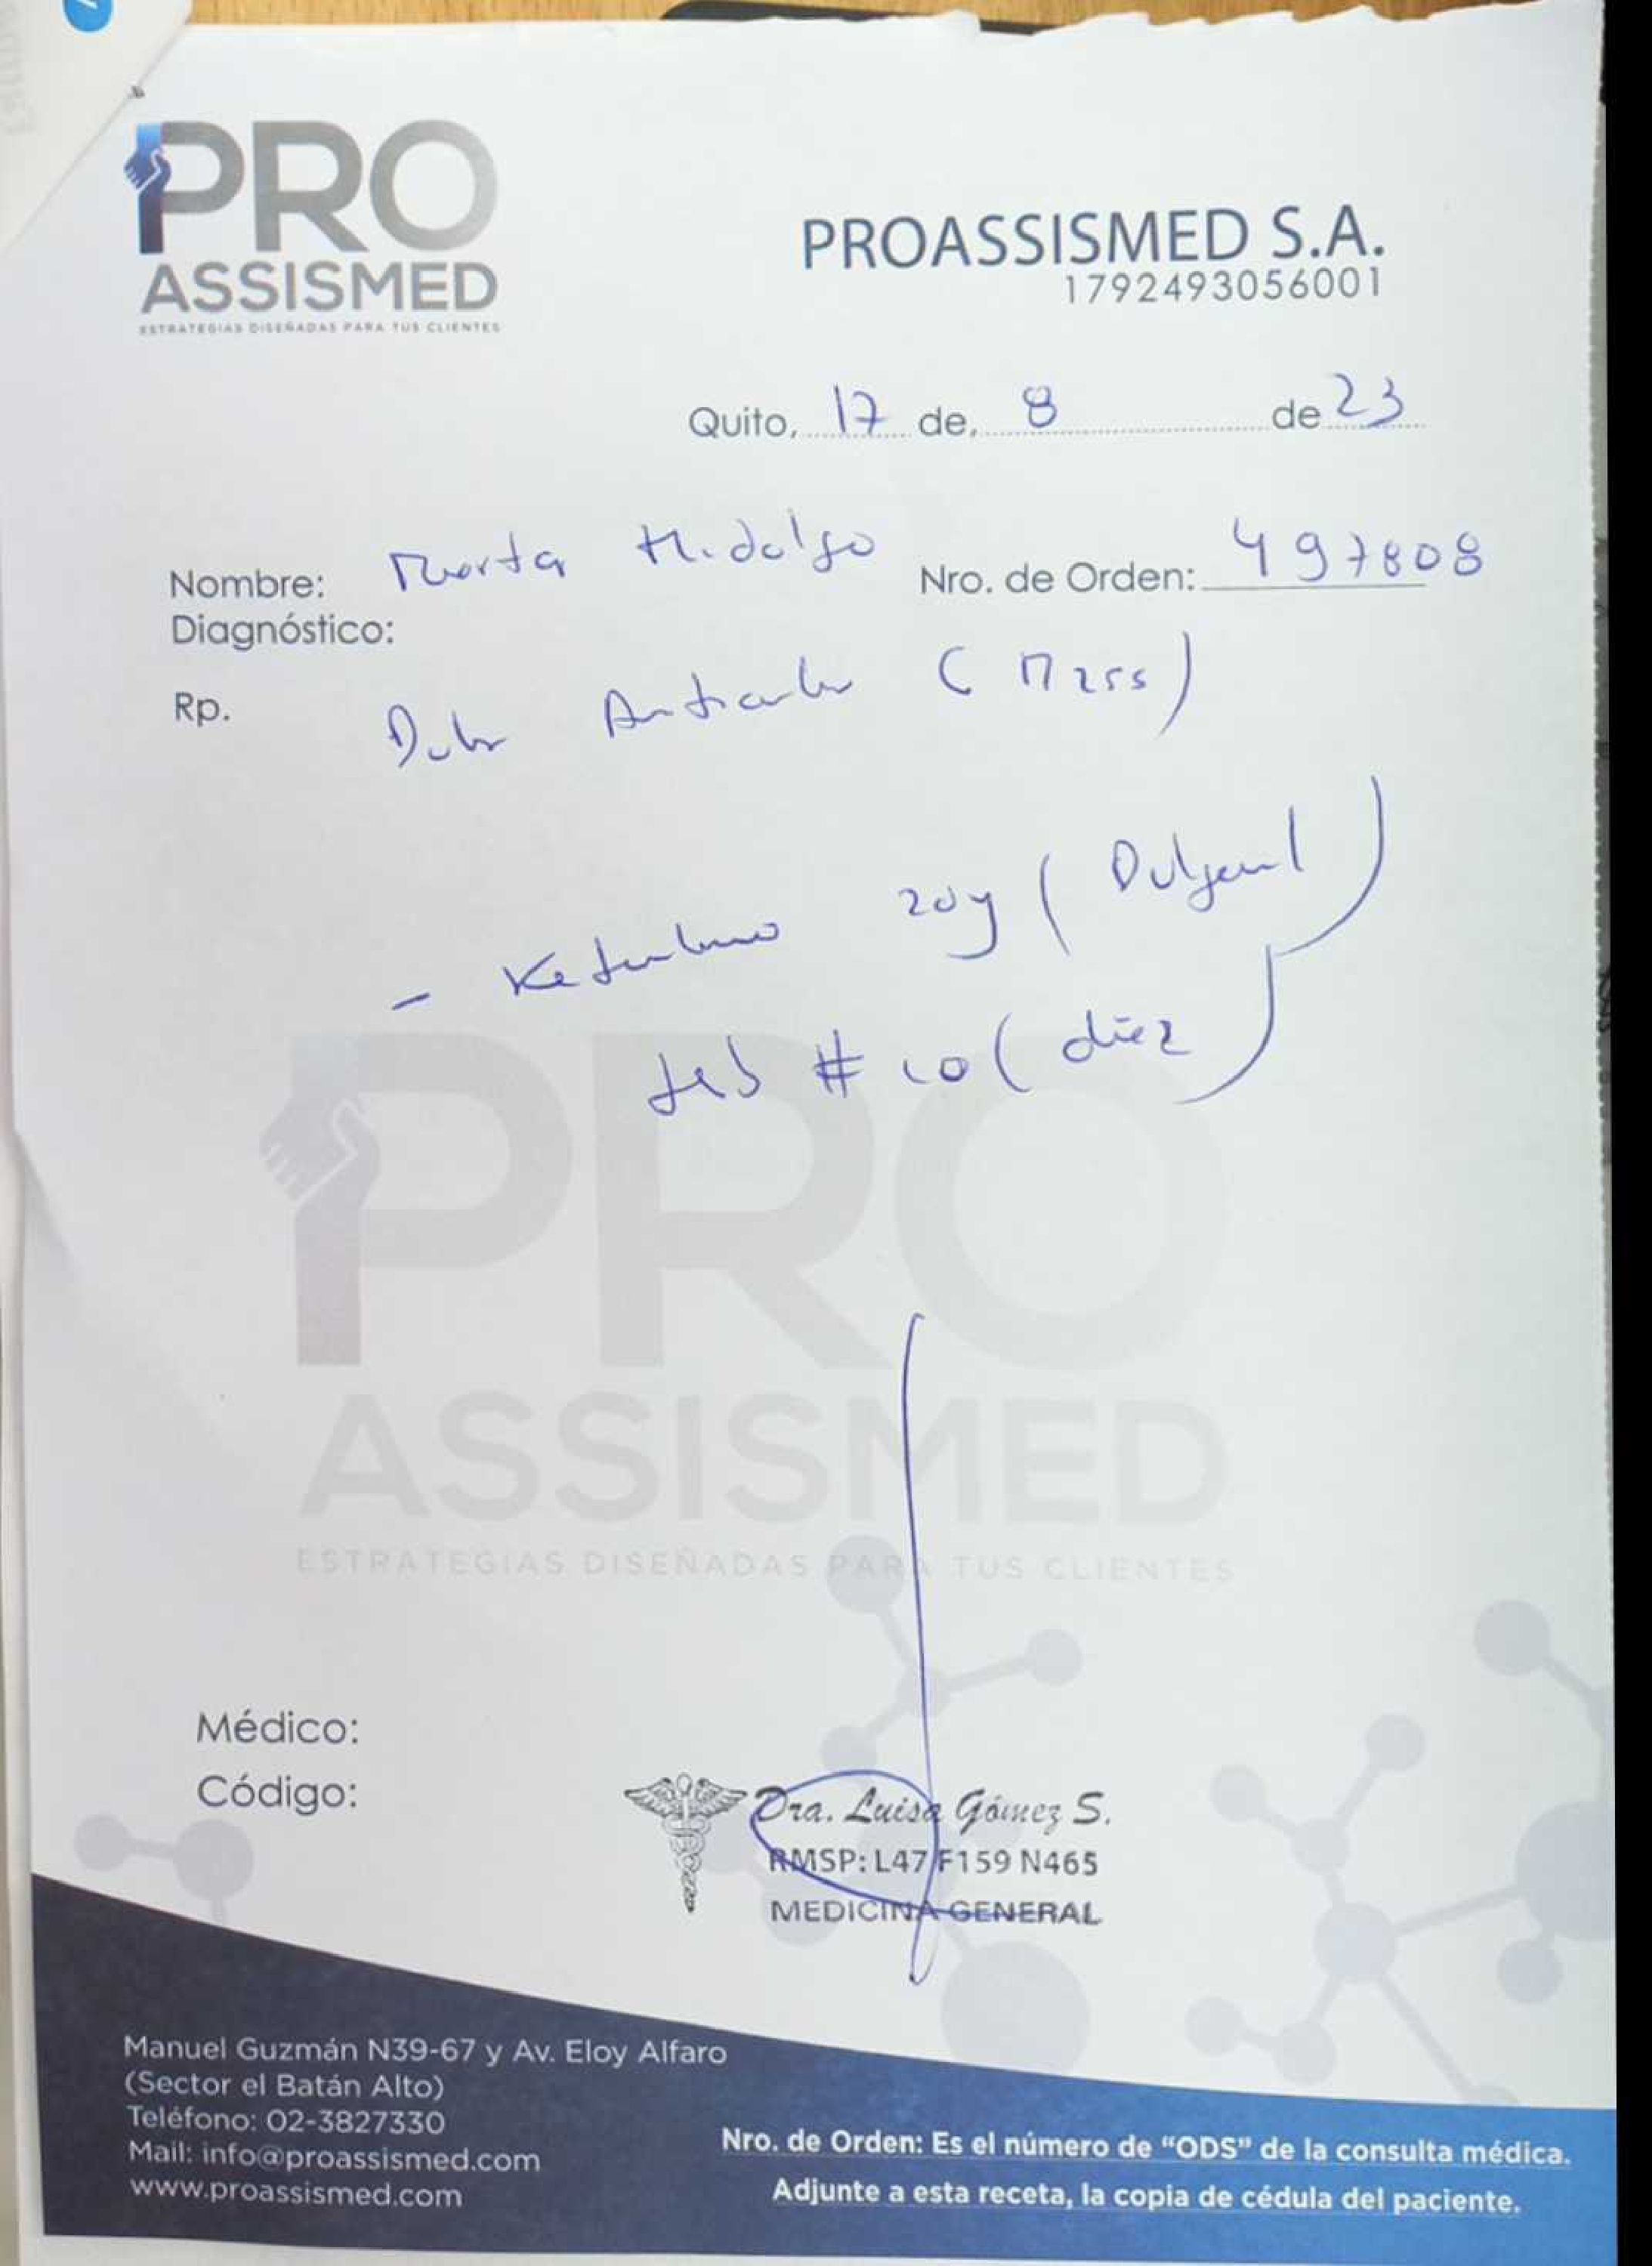 PRO
ASSISMED
ESTRATEGIAS DISEÑADAS PARA TUS CLIENTES
PROASSISMED S.A.
1792493056001
Quito, 17 de, 8 de 23
Nombre: Marta Hidalgo Nro. de Orden: 497808
Diagnóstico:
Rp. Dolor Articular (M255)
- Ketorolaco 20mg (Dolgenal)
tab # 10 (diez)
PRO
ASSISMED
ESTRATEGIAS DISEÑADAS PARA TUS CLIENTES
Médico:
Código:
Dra. Luisa Gómez S.
RMSP: L47 F159 N465
MEDICINA GENERAL
Manuel Guzmán N39-67 y Av. Eloy Alfaro
(Sector el Batán Alto)
Teléfono: 02-3827330
Mail: info@proassismed.com
www.proassismed.com
Nro. de Orden: Es el número de “ODS” de la consulta médica.
Adjunte a esta receta, la copia de cédula del paciente.